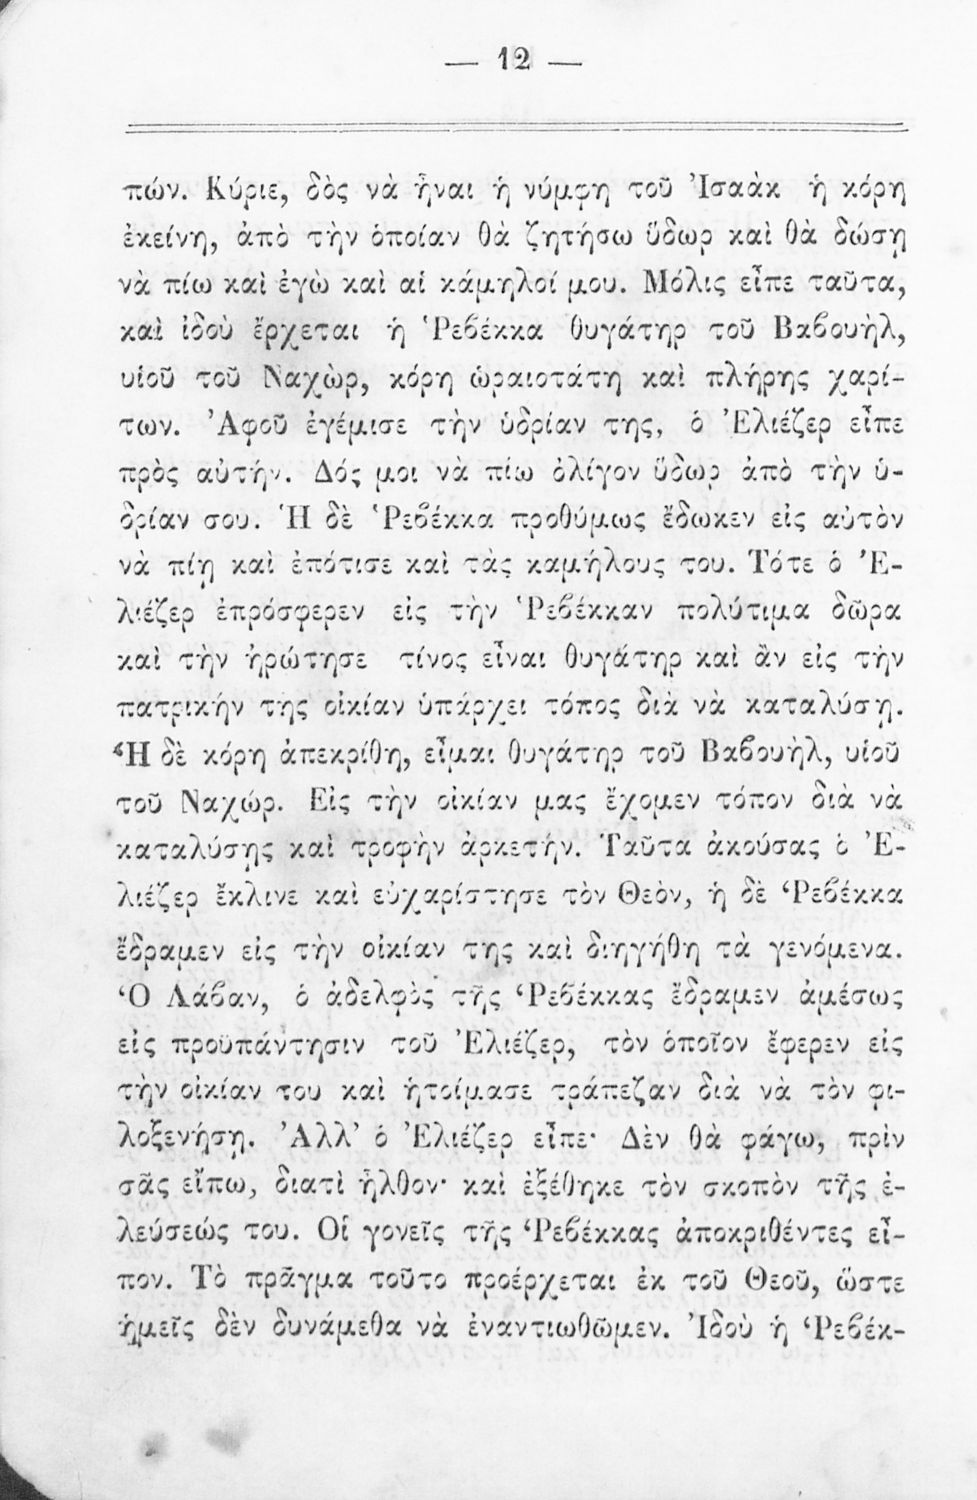 — 12 —
πών. Κύριε, δὸς νὰ ἦναι ἡ νύμφη τοῦ Ἰσαὰκ ἡ κόρη
ἐκείνη, ἀπὸ τὴν ὁποίαν θὰ ζητήσω ὕδωρ καὶ θὰ δώσῃ
νὰ πίω καὶ ἐγὼ καὶ αἱ κάμηλοί μου. Μόλις εἶπε ταῦτα,
καὶ ἰδοὺ ἔρχεται ἡ Ῥεβέκκα θυγάτηρ τοῦ Βαβουὴλ,
υἱοῦ τοῦ Ναχὼρ, κόρη ὡραιοτάτη καὶ πλήρης χαρί-
των. Ἀφοῦ ἐγέμισε τὴν ὑδρίαν της, ὁ Ἐλιέζερ εἶπε
πρὸς αὐτήν. Δός μοι νὰ πίω ὀλίγον ὕδωρ ἀπὸ τὴν ὑ-
δρίαν σου. Ἡ δὲ Ῥεβέκκα προθύμως ἔδωκεν εἰς αὐτὸν
νὰ πίῃ καὶ ἐπότισε καὶ τὰς καμήλους του. Τότε ὁ Ἐ-
λιέζερ ἐπρόσφερεν εἰς τὴν Ῥεβέκκαν πολύτιμα δῶρα
καὶ τὴν ἠρώτησε τίνος εἶναι θυγάτηρ καὶ ἂν εἰς τὴν
πατρικήν της οἰκίαν ὑπάρχει τόπος διὰ νὰ καταλύσῃ.
Ἡ δὲ κόρη ἀπεκρίθη, εἶμαι θυγάτηρ τοῦ Βαβουὴλ, υἱοῦ
τοῦ Ναχώρ. Εἰς τὴν οἰκίαν μας ἔχομεν τόπον διὰ νὰ
καταλύσῃς καὶ τροφὴν ἀρκετήν. Ταῦτα ἀκούσας ὁ Ἐ-
λιέζερ ἔκλινε καὶ εὐχαρίστησε τὸν Θεὸν, ἡ δὲ Ῥεβέκκα
ἔδραμεν εἰς τὴν οἰκίαν της καὶ διηγήθη τὰ γενόμενα.
Ὁ Λάβαν, ὁ ἀδελφὸς τῆς Ῥεβέκκας ἔδραμεν ἀμέσως
εἰς προϋπάντησιν τοῦ Ἐλιέζερ, τὸν ὁποῖον ἔφερεν εἰς
τὴν οἰκίαν του καὶ ἡτοίμασε τράπεζαν διὰ νὰ τὸν φι-
λοξενήσῃ. Ἀλλ’ ὁ Ἐλιέζερ εἶπε· Δὲν θὰ φάγω, πρὶν
σᾶς εἴπω, διατὶ ἦλθον· καὶ ἐξέθηκε τὸν σκοπὸν τῆς ἐ-
λεύσεώς του. Οἱ γονεῖς τῆς Ῥεβέκκας ἀποκριθέντες εἶ-
πον. Τὸ πρᾶγμα τοῦτο προέρχεται ἐκ τοῦ Θεοῦ, ὥστε
ἡμεῖς δὲν δυνάμεθα νὰ ἐναντιωθῶμεν. Ἰδοὺ ἡ Ῥεβέκ-